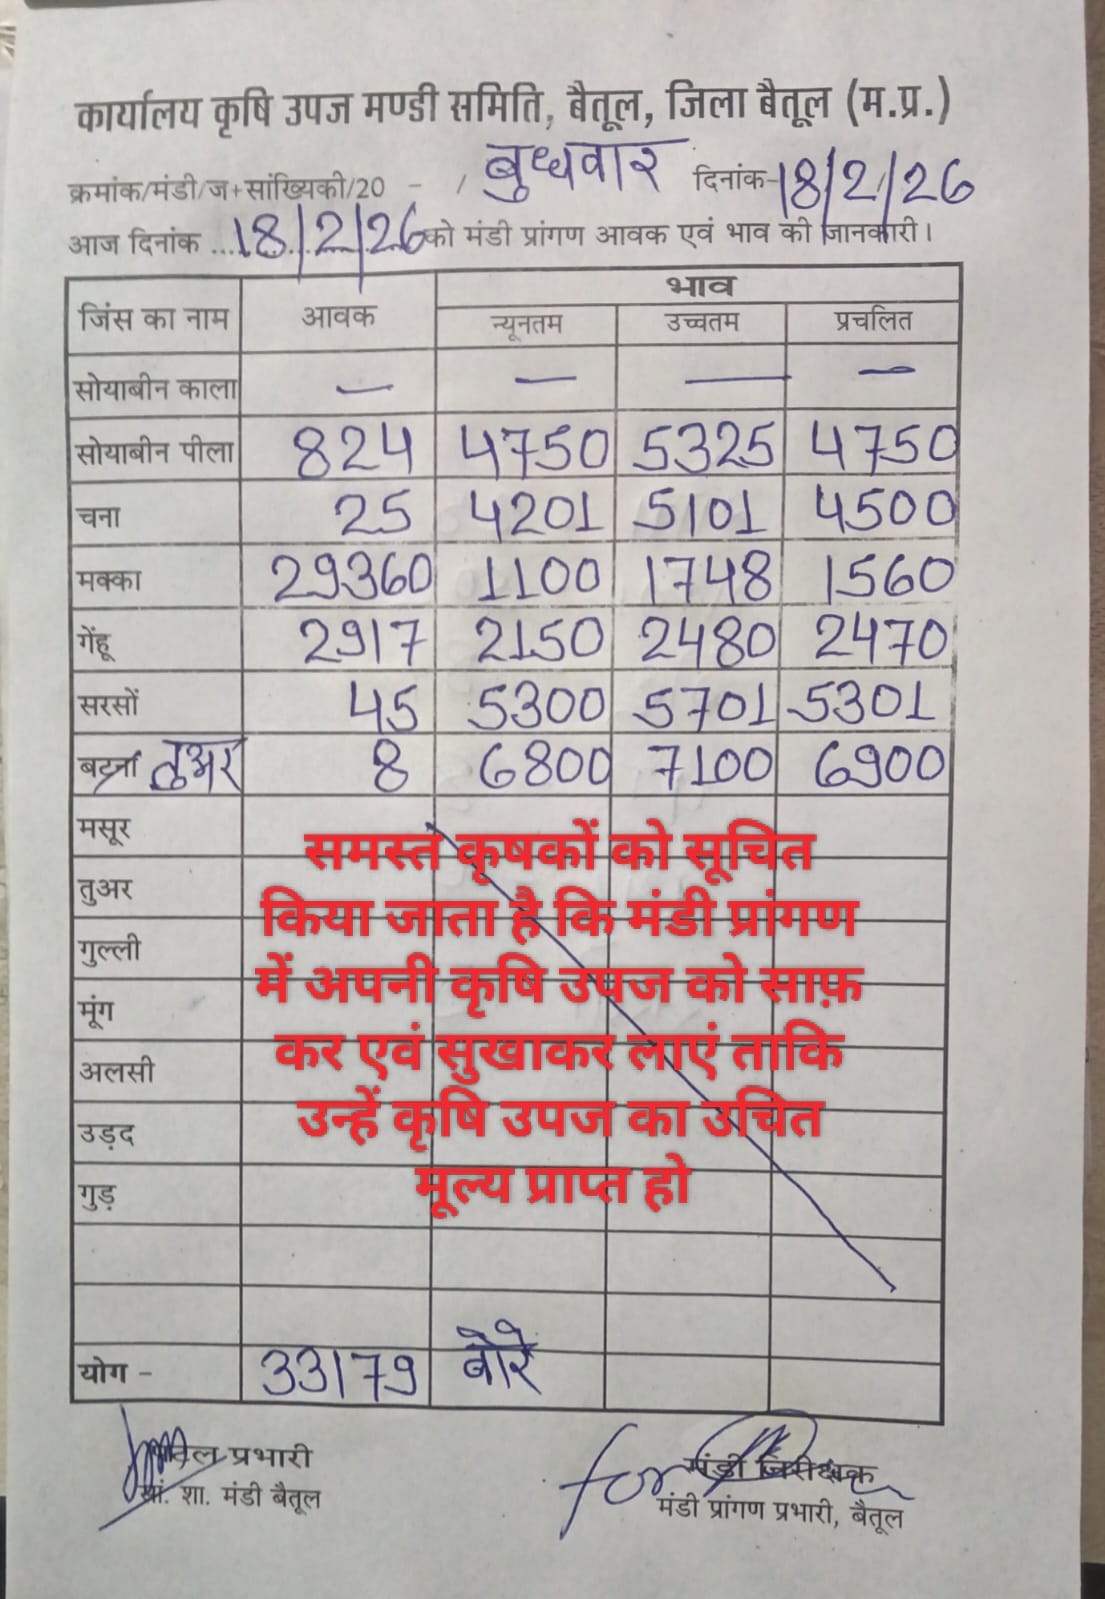 कार्यालय कृषि उपज मण्डी समिति, बैतूल, जिला बैतूल (म.प्र.)
क्रमांक/मंडी/ज+सांख्यिकी/20 - / बुधवार दिनांक-18/2/26
आज दिनांक ...18/2/26 को मंडी प्रांगण आवक एवं भाव की जानकारी।
जिंस का नाम आवक भाव
न्यूनतम उच्चतम प्रचलित
सोयाबीन काला — — — —
सोयाबीन पीला 824 4750 5325 4750
चना 25 4201 5101 4500
मक्का 29360 1100 1748 1560
गेंहू 2917 2150 2480 2470
सरसों 45 5300 5701 5301
तुअर 8 6800 7100 6900
मसूर
तुअर
गुल्ली
मूंग
अलसी
उड़द
गुड़
समस्त कृषकों को सूचित
किया जाता है कि मंडी प्रांगण
में अपनी कृषि उपज को साफ़
कर एवं सुखाकर लाएं ताकि
उन्हें कृषि उपज का उचित
मूल्य प्राप्त हो
योग - 33179 बोरे
प्रभारी
सां. शा. मंडी बैतूल
for मंडी निरीक्षक
मंडी प्रांगण प्रभारी, बैतूल